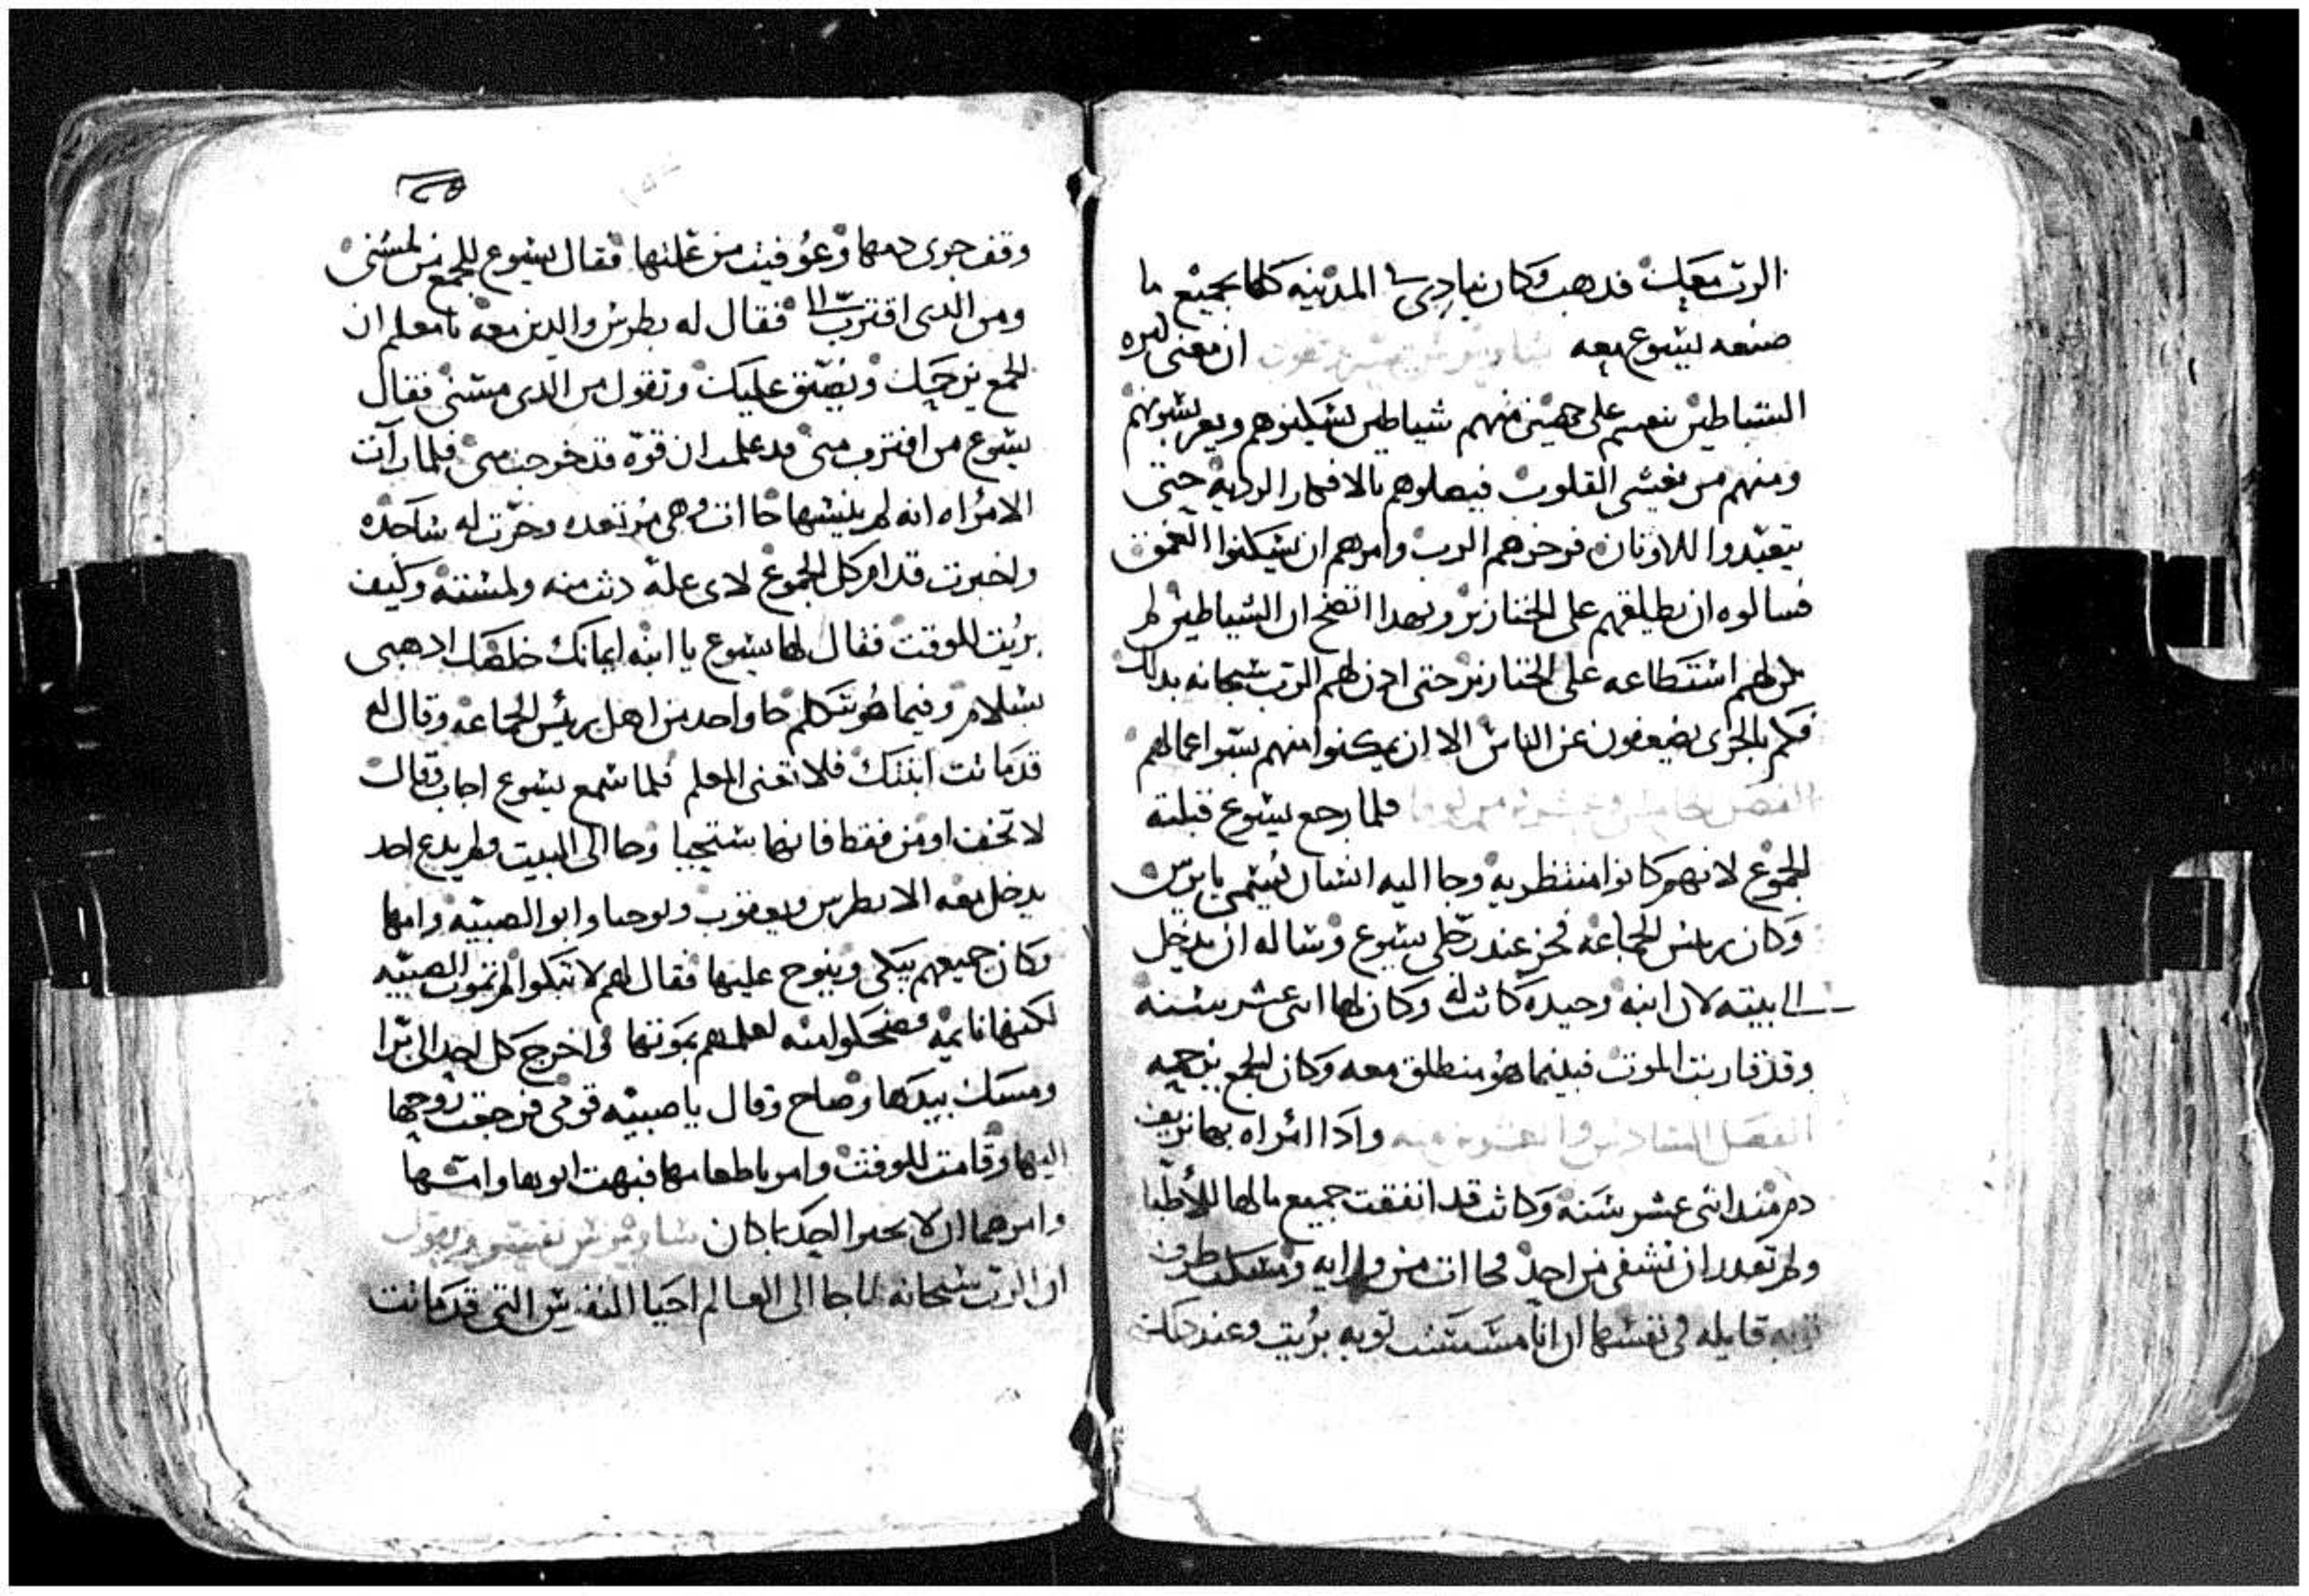 الرب معك فدهب وكان ينادي في المدينه كلها بجميع ما
صنعه يسوع معه ساويرس بقول ان معنى كثره
الشياطين ينقسم على جهتين منهم شياطين يسكنوهم ويعرشونهم
ومنهم من يغشى القلوب فيصلوهم بالافكار الرديه حتى
يتعبدوا للاوثان فزجرهم الرب وامرهم ان يسكنوا العمق
فسالوه ان يطلقهم على الخنازير وبهدا اتضح ان الشياطين لم
تكن لهم استطاعه على الخنازير حتى ادن لهم الرب سبحانه بدلك
فكم بالحرى يضعفون عن الناس الا ان يمكنوا منهم بسو اعمالهم
الفصل الخامس وعشرون من لوقا فلما رجع يسوع قبلته
الجموع لانهم كانوا منتظريه وجا اليه انسان يسمى يايرس
وكان رييس الجماعه فخر عند رجلى يسوع وساله ان يدخل
الى بيته لان ابنه وحيده كانت له وكان لها اتنى عشر سنه
وقد قاربت الموت فبينما هو منطلق معه وكان الجمع يزحمه
الفصل السادس والعشرون منه وادا امراه بها نزيف
دم مند اتنى عشر سنه وكانت قد انفقت جميع مالها للأطبا
ولم تقدر ان تشفى من احد فجاات من ورايه ومسكت طرف
توبه قايله في نفسها ان انا مسست توبه بريت وعند دلك
وقف جرى دمها وعوفيت من علتها فقال يسوع للجمع من لمسنى
ومن الدى اقترب الي فقال له بطرس والدين معه يا معلم ان
الجمع يزحمك ويضيق عليك وتقول من الدى مسنى فقال
يسوع من اقترب منى قد علمت ان قوه قد خرجت منى فلما رأت
الامراه انه لم ينسها جاات وهى مرتعده وخرت له ساجده
واخبرت قدام كل الجموع لاى علة دنت منه ولمسته وكيف
بريت للوقت فقال لها يسوع يا ابنه ايمانك خلصك ادهبى
بسلام وفيما هو يتكلم جا واحد من اهل رييس الجماعه وقال له
قد ماتت ابنتك فلا تعنى المعلم فلما سمع يسوع اجاب وقال
لا تخف اومن فقط فانها ستحيا وجا الى البيت ولم يدع احد
يدخل معه الا بطرس ويعقوب ويوحنا وابو الصبيه وامها
وكان جميعهم يبكى وينوح عليها فقال لهم لا تبكوا لم تموت الصبيه
لكنها نايمه فضحكوا منه لعلمهم بموتها فاخرج كل احد الى برا
ومسك بيدها وصاح وقال يا صبيه قومى فرجعت روحها
اليها وقامت للوقت وامر باطعامها فبهت ابوها وامها
وامرهما ان لا يخبرا احد بما كان ساويرس بقول
ان الرب سبحانه لما جا الى العالم احيا النفس التى قد ماتت